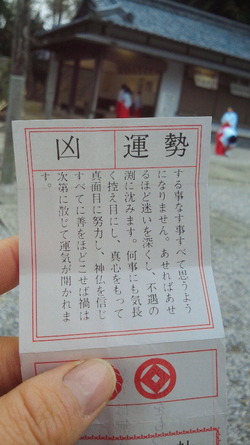 運勢 凶
する事なす事すべて思うよう
になりません。あせればあせ
るほど迷いを深くし、不遇の
淵に沈みます。何事にも気長
く控え目にし、真心をもって
真面目に努力し、神仏を信じ
すべてに善をほどこせば禍は
次第に散じて運気が開かれま
す。